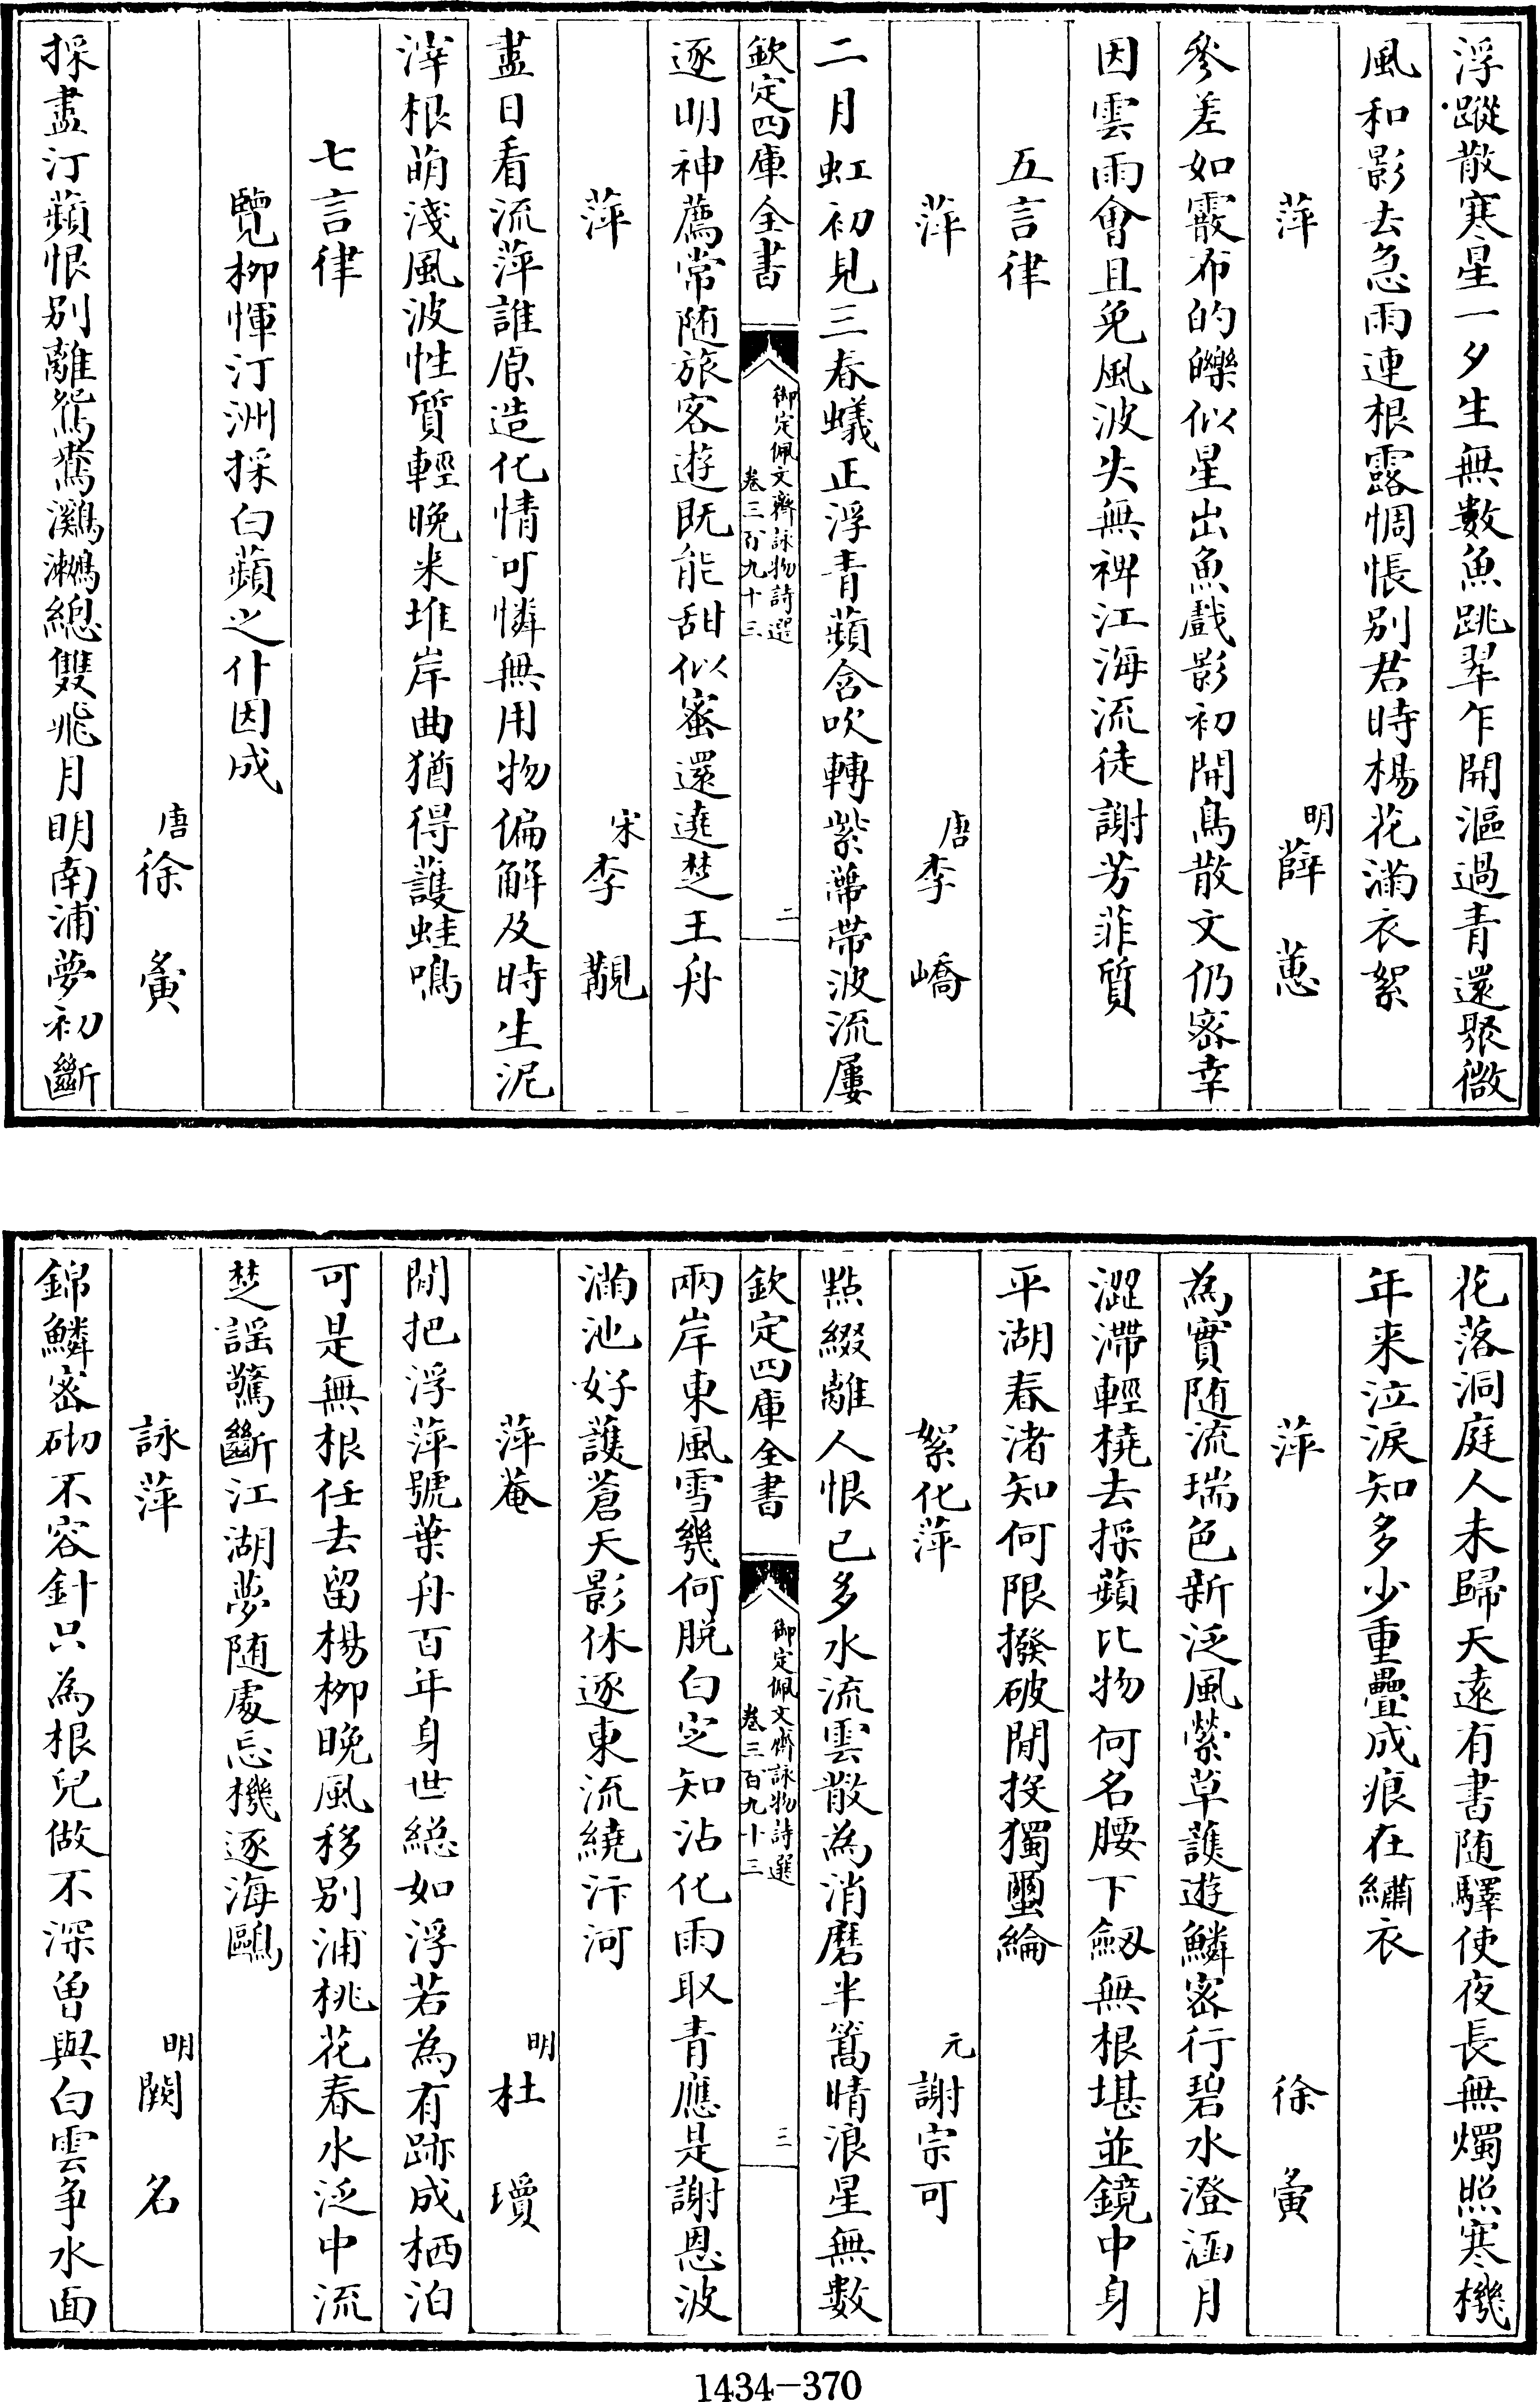 浮蹤散寒星一夕生無數魚跳翠乍開漚過青還聚微
風和影去急雨連根露惆悵别君時楊花滿衣絮
萍 明薛蕙
參差如霰布的皪似星出魚戲影初開鳥散文仍宻幸
因雲雨會且免風波失無裨江海流徒謝芳菲質
五言律
萍 唐李嶠
二月虹初見三春蟻正浮青蘋含吹轉紫蔕帶波流屢
欽定四庫全書 御定佩文齋詠物詩選 卷三百九十三 二
逐明神薦常随旅客遊既能甜似蜜還遶楚王舟
萍 宋李覯
盡日看流萍誰原造化情可憐無用物偏解及時生泥
滓根萌淺風波性質輕晚来堆岸曲猶得護蛙鳴
七言律
覽柳惲汀洲採白蘋之什因成
唐徐夤
採盡汀蘋恨别離鴛鴦鸂鶒總雙飛月明南浦夢初斷
花落洞庭人未歸天遠有書随驛使夜長無燭照寒機
年来泣淚知多少重疊成痕在繡衣
萍 徐夤
為實随流瑞色新泛風縈草護遊鱗宻行碧水澄涵月
澀滯輕橈去採蘋比物何名腰下劒無根堪並鏡中身
平湖春渚知何限撥破閒投獨璽綸
絮化萍 元謝宗可
㸃綴離人恨已多水流雲散為消磨半篙晴浪星無數
欽定四庫全書 御定佩文齋詠物詩選 卷三百九十三 三
兩岸東風雪幾何脱白定知沾化雨取青應是謝恩波
滿池好護蒼天影休逐東流繞汴河
萍菴 明杜瓊
閒把浮萍號葉舟百年身世総如浮若為有跡成栖泊
可是無根任去留楊柳晚風移别浦桃花春水泛中流
楚謡驚斷江湖夢随處忘機逐海鷗
詠萍 明闕名
錦鱗宻砌不容針只為根兒做不深曽與白雲争水面
1434-370